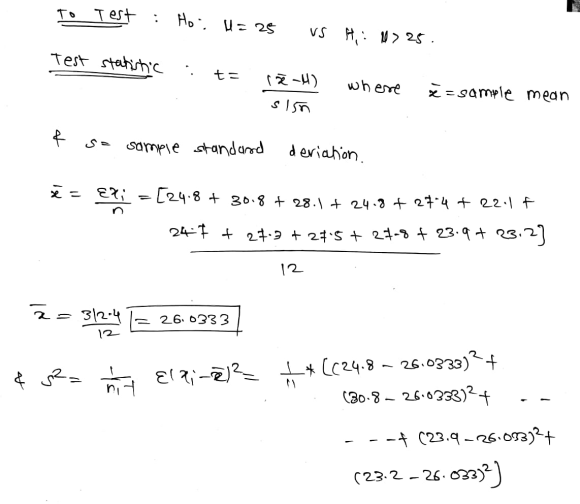 To Test : H₀: μ = 25 vs H₁: μ > 25.
Test statistic : t = (x̄-μ) / s/√n where x̄ = sample mean
& s = sample standard deviation.
x̄ = Σxᵢ / n = [24.8 + 30.8 + 28.1 + 24.8 + 27.4 + 22.1 +
24.7 + 27.3 + 27.5 + 27.8 + 23.9 + 23.2]
12
x̄ = 312.4 / 12 = 26.0333
& s² = 1 / n-1 Σ(xᵢ-x̄)² = 1/11 * [(24.8 - 26.0333)² +
(30.8 - 26.0333)² + - -
- - - + (23.9 - 26.033)² +
(23.2 - 26.033)²]